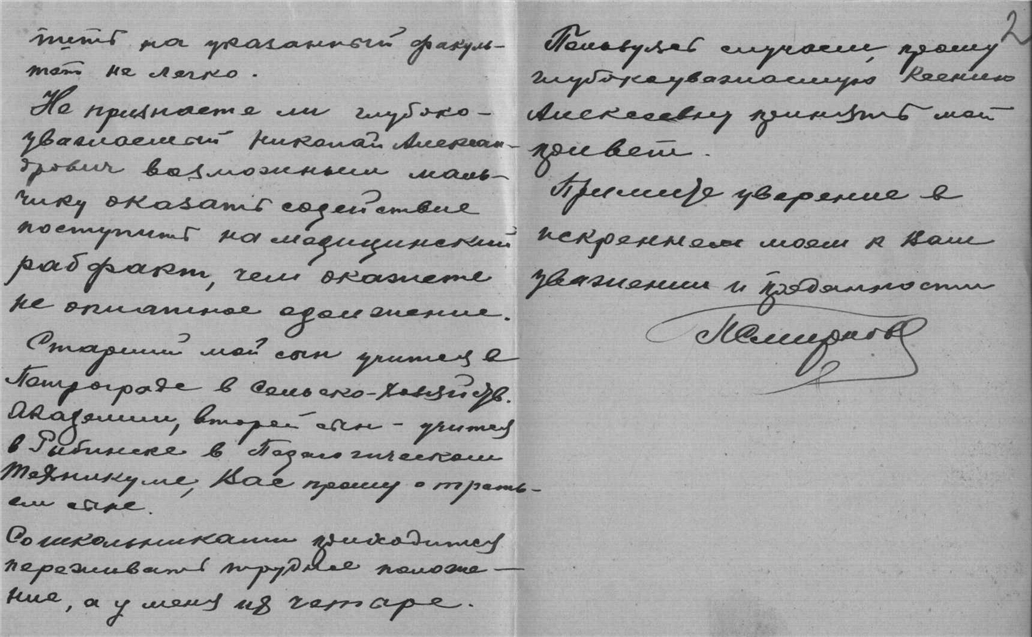 тить на указанный факуль-
тет не легко.
Не признаете ли глубоко-
уважаемый Николай Алексан-
дрович возможным маль-
чику оказать содействие
поступить на медицинский
рабфакт, чем окажете
не оплатное одолжение.
Старший мой сын учится в
Петрограде в Сельско-Хозяйств.
Академии, второй сын - учится
в Рыбинске в Педагогическом
Техникуме, Вас прошу о треть-
ем сыне.
Сошкольниками приходится
переживать трудное положе-
ние, а у меня их четаре.
2
Пользуясь случаем, прошу
глубокоуважаемую Ксению
Алексеевну принять мой
привет.
Примите уверение в
искреннем моем к Вам
уважении и преданности
ПСмирнов